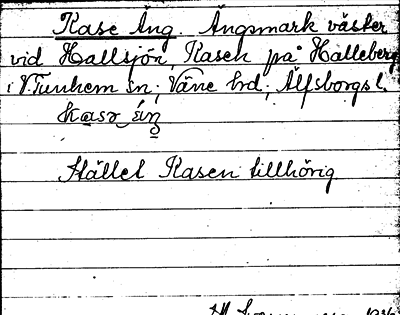 Kase Äng. Ängsmark väster
vid Hallsjön, Kasen på Halleberg
i V. Tunhem sn; Väne hd; Älfsborgs l.
Stället Kasen tillhörig